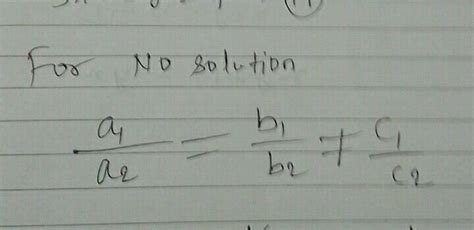 For No solution
a1/a2 = b1/b2 ≠ c1/c2